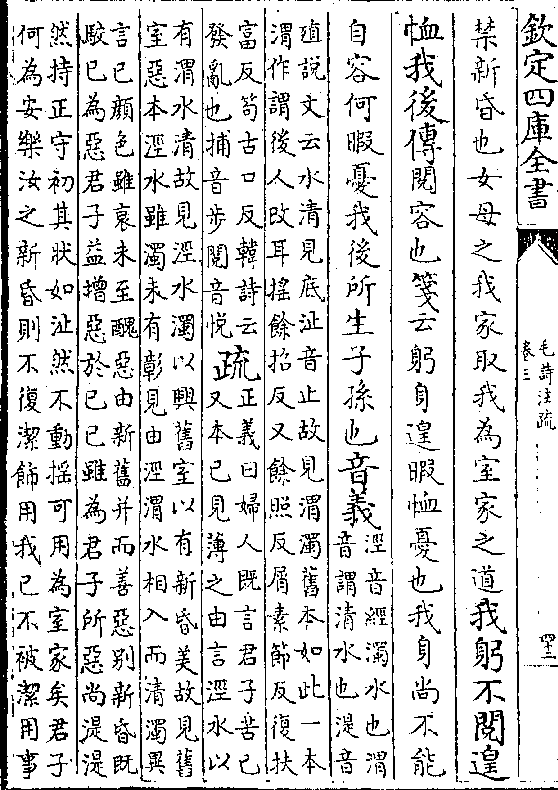 欽定四庫全書
毛詩注疏
卷三
四三
禁新昏也女毋之我家取我為室家之道我躬不閱遑
恤我後傳閱容也箋云躬身遑暇恤憂也我身尚不能
自容何暇憂我後所生子孫也音義
涇音經濁水也渭
音謂清水也湜音
殖說文云水清見底沚音止故見渭濁舊本如此一本
渭作謂後人改耳搖餘招反又餘照反屑素節反復扶
富反笱古口反韓詩云
發亂也捕音步閱音悅
疏
正義曰婦人既言君子苦已
又本已見薄之由言涇水以
有渭水清故見涇水濁以興舊室以有新昏美故見舊
室惡本涇水雖濁未有彰見由涇渭水相入而清濁異
言已顏色雖衰未至醜惡由新舊并而善惡別新昏既
駮已為惡君子益增惡於已已雖為君子所惡尚湜湜
然持正守初其狀如沚然不動搖可用為室家矣君子
何為安樂汝之新昏則不復潔飾用我已不被潔用事